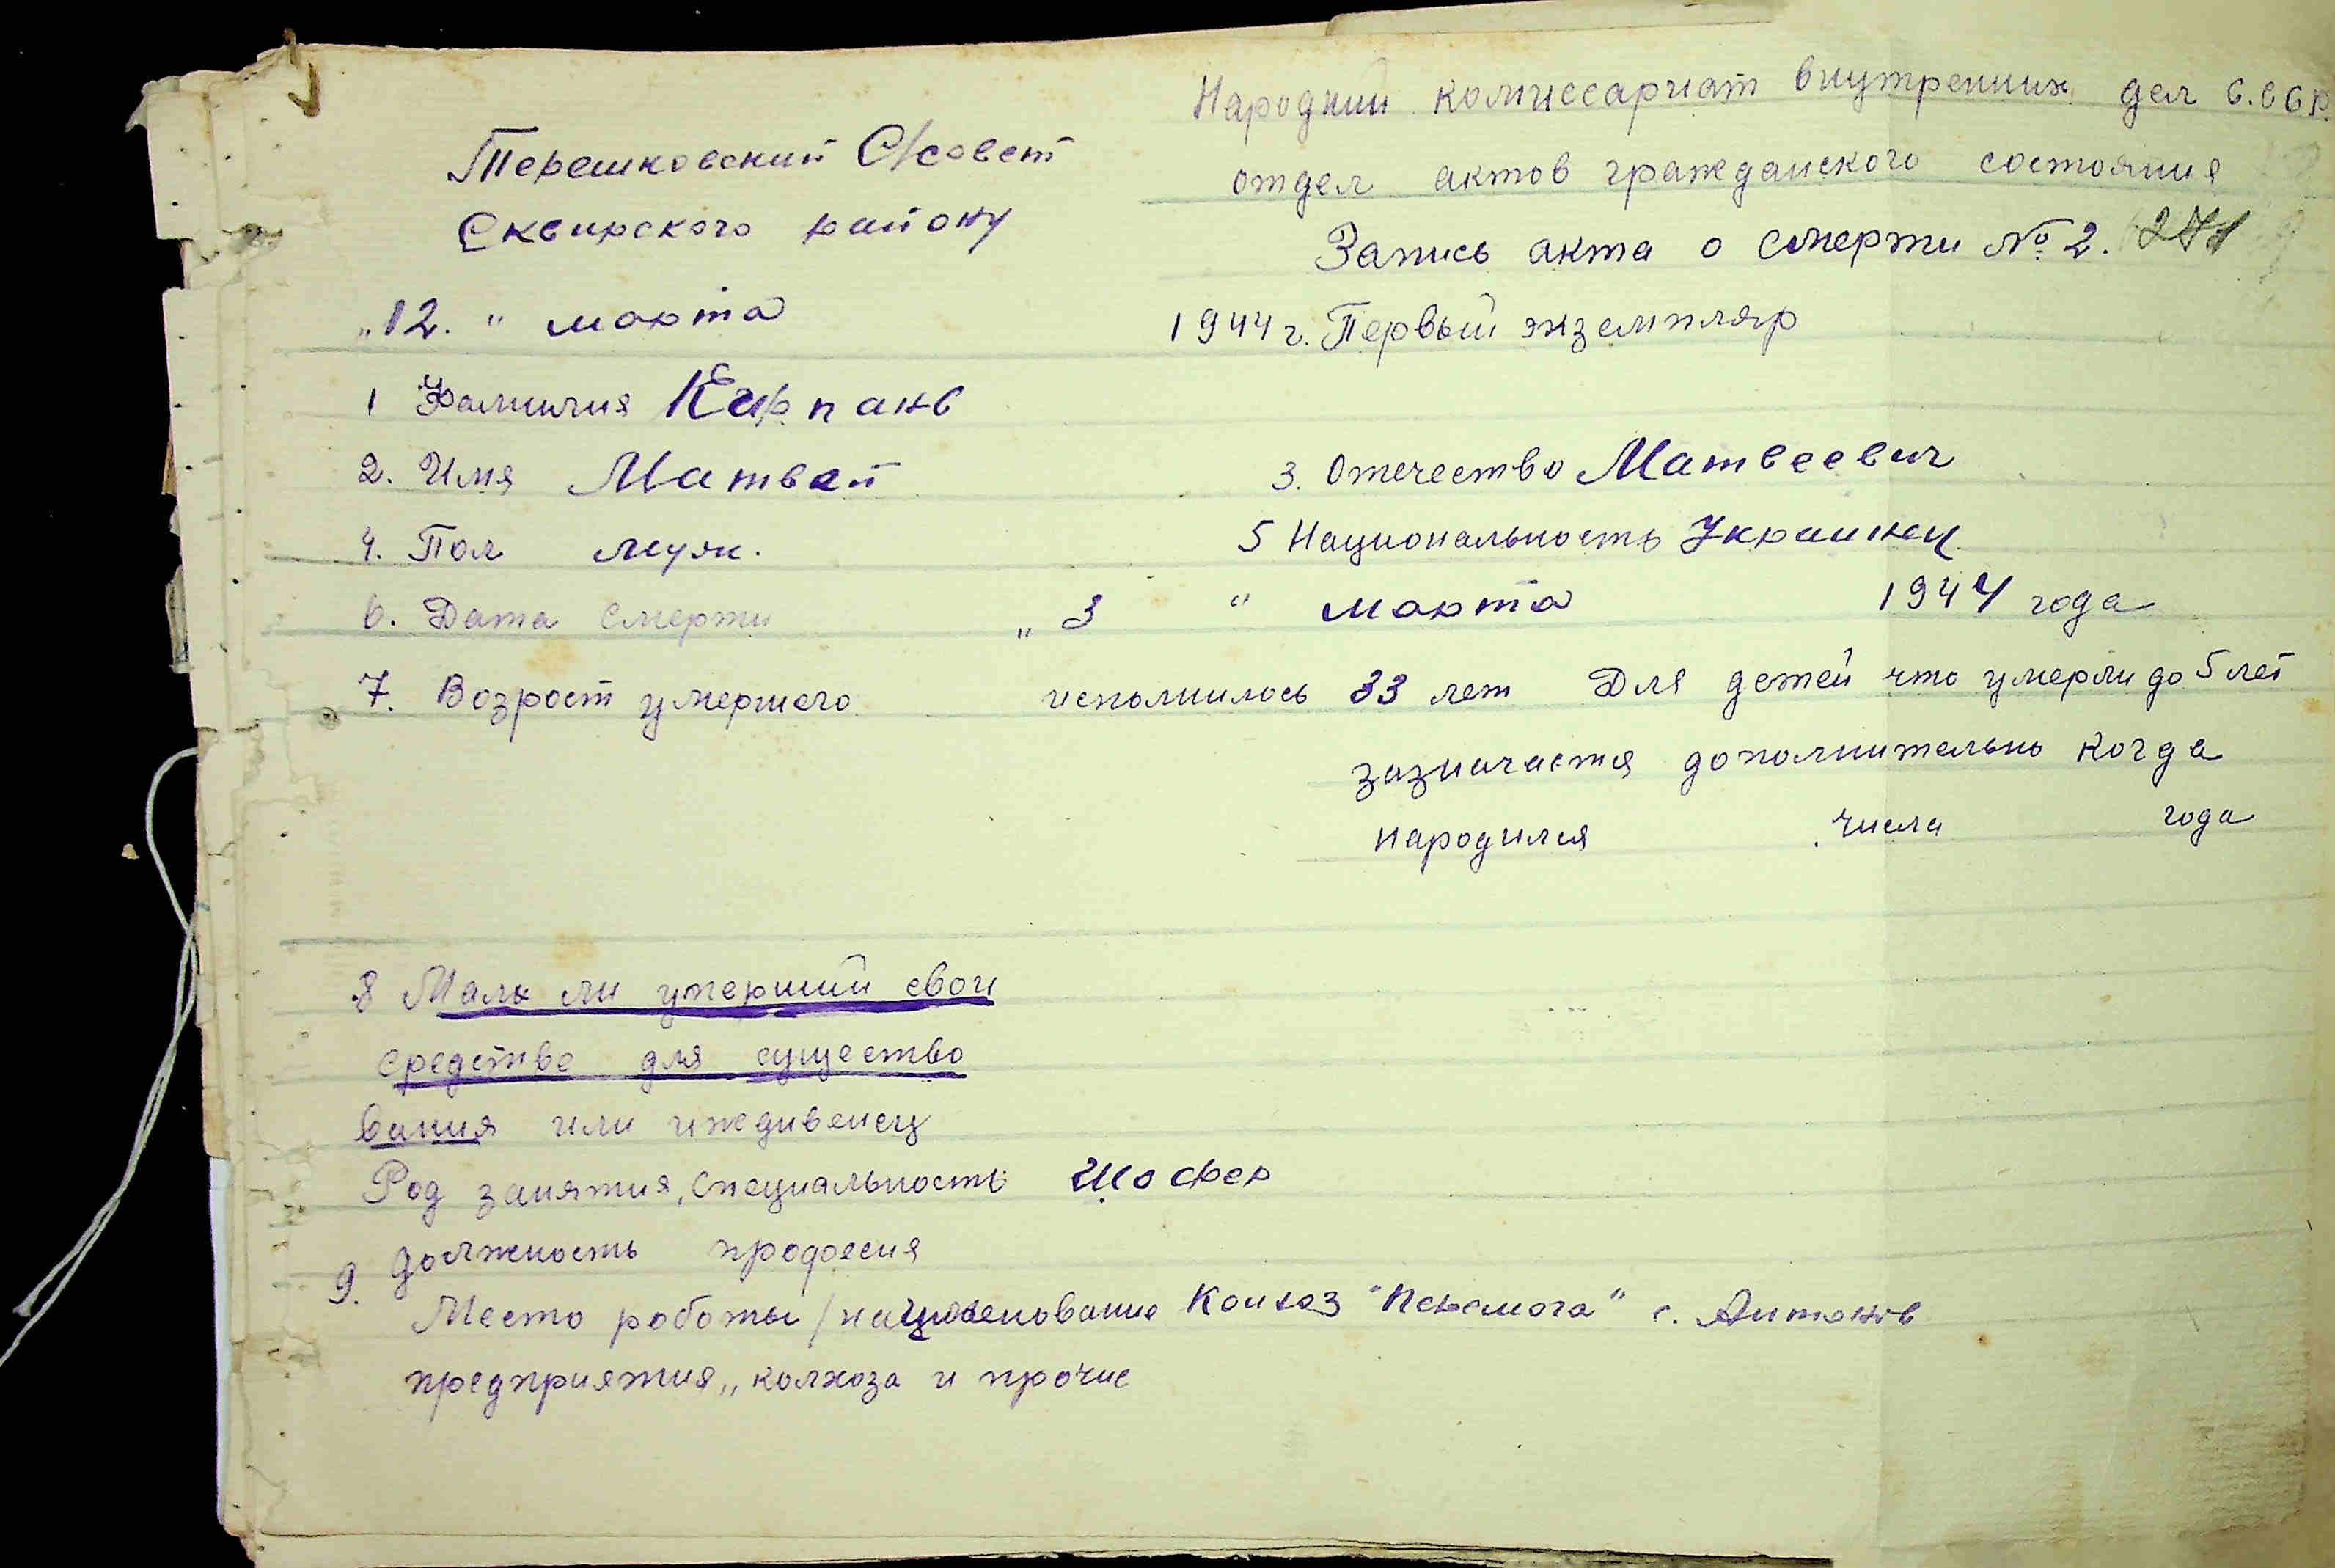 Народний комиссариат внутренних дел С.ССР.
отдел актов гражданского состояния
Терешковский С/совет
Сквирского району
Запись акта о смерти № 2. 271
„12. “ марта 1944 г. Первый экземпляр
1 Фамилия Кирпань
2. Имя Матвей 3. Отечество Матвеевич
4. Пол муж. 5 Национальность Украинец
6. Дата смерти „ 3 “ марта 1944 года
7. Возрост умершего исполнилось 33 лет Для детей что умерли до 5 лет
зазначаетя дополнительно когда
народился числа года
8 Малх ли умерший свои
средства для существо
вания или иждивенец
Род занятия, специальность Шофер
9. должность професия
Место роботы / наименование Колхоз "Перемога" с. Антонов
предприятия„ колхоза и прочие